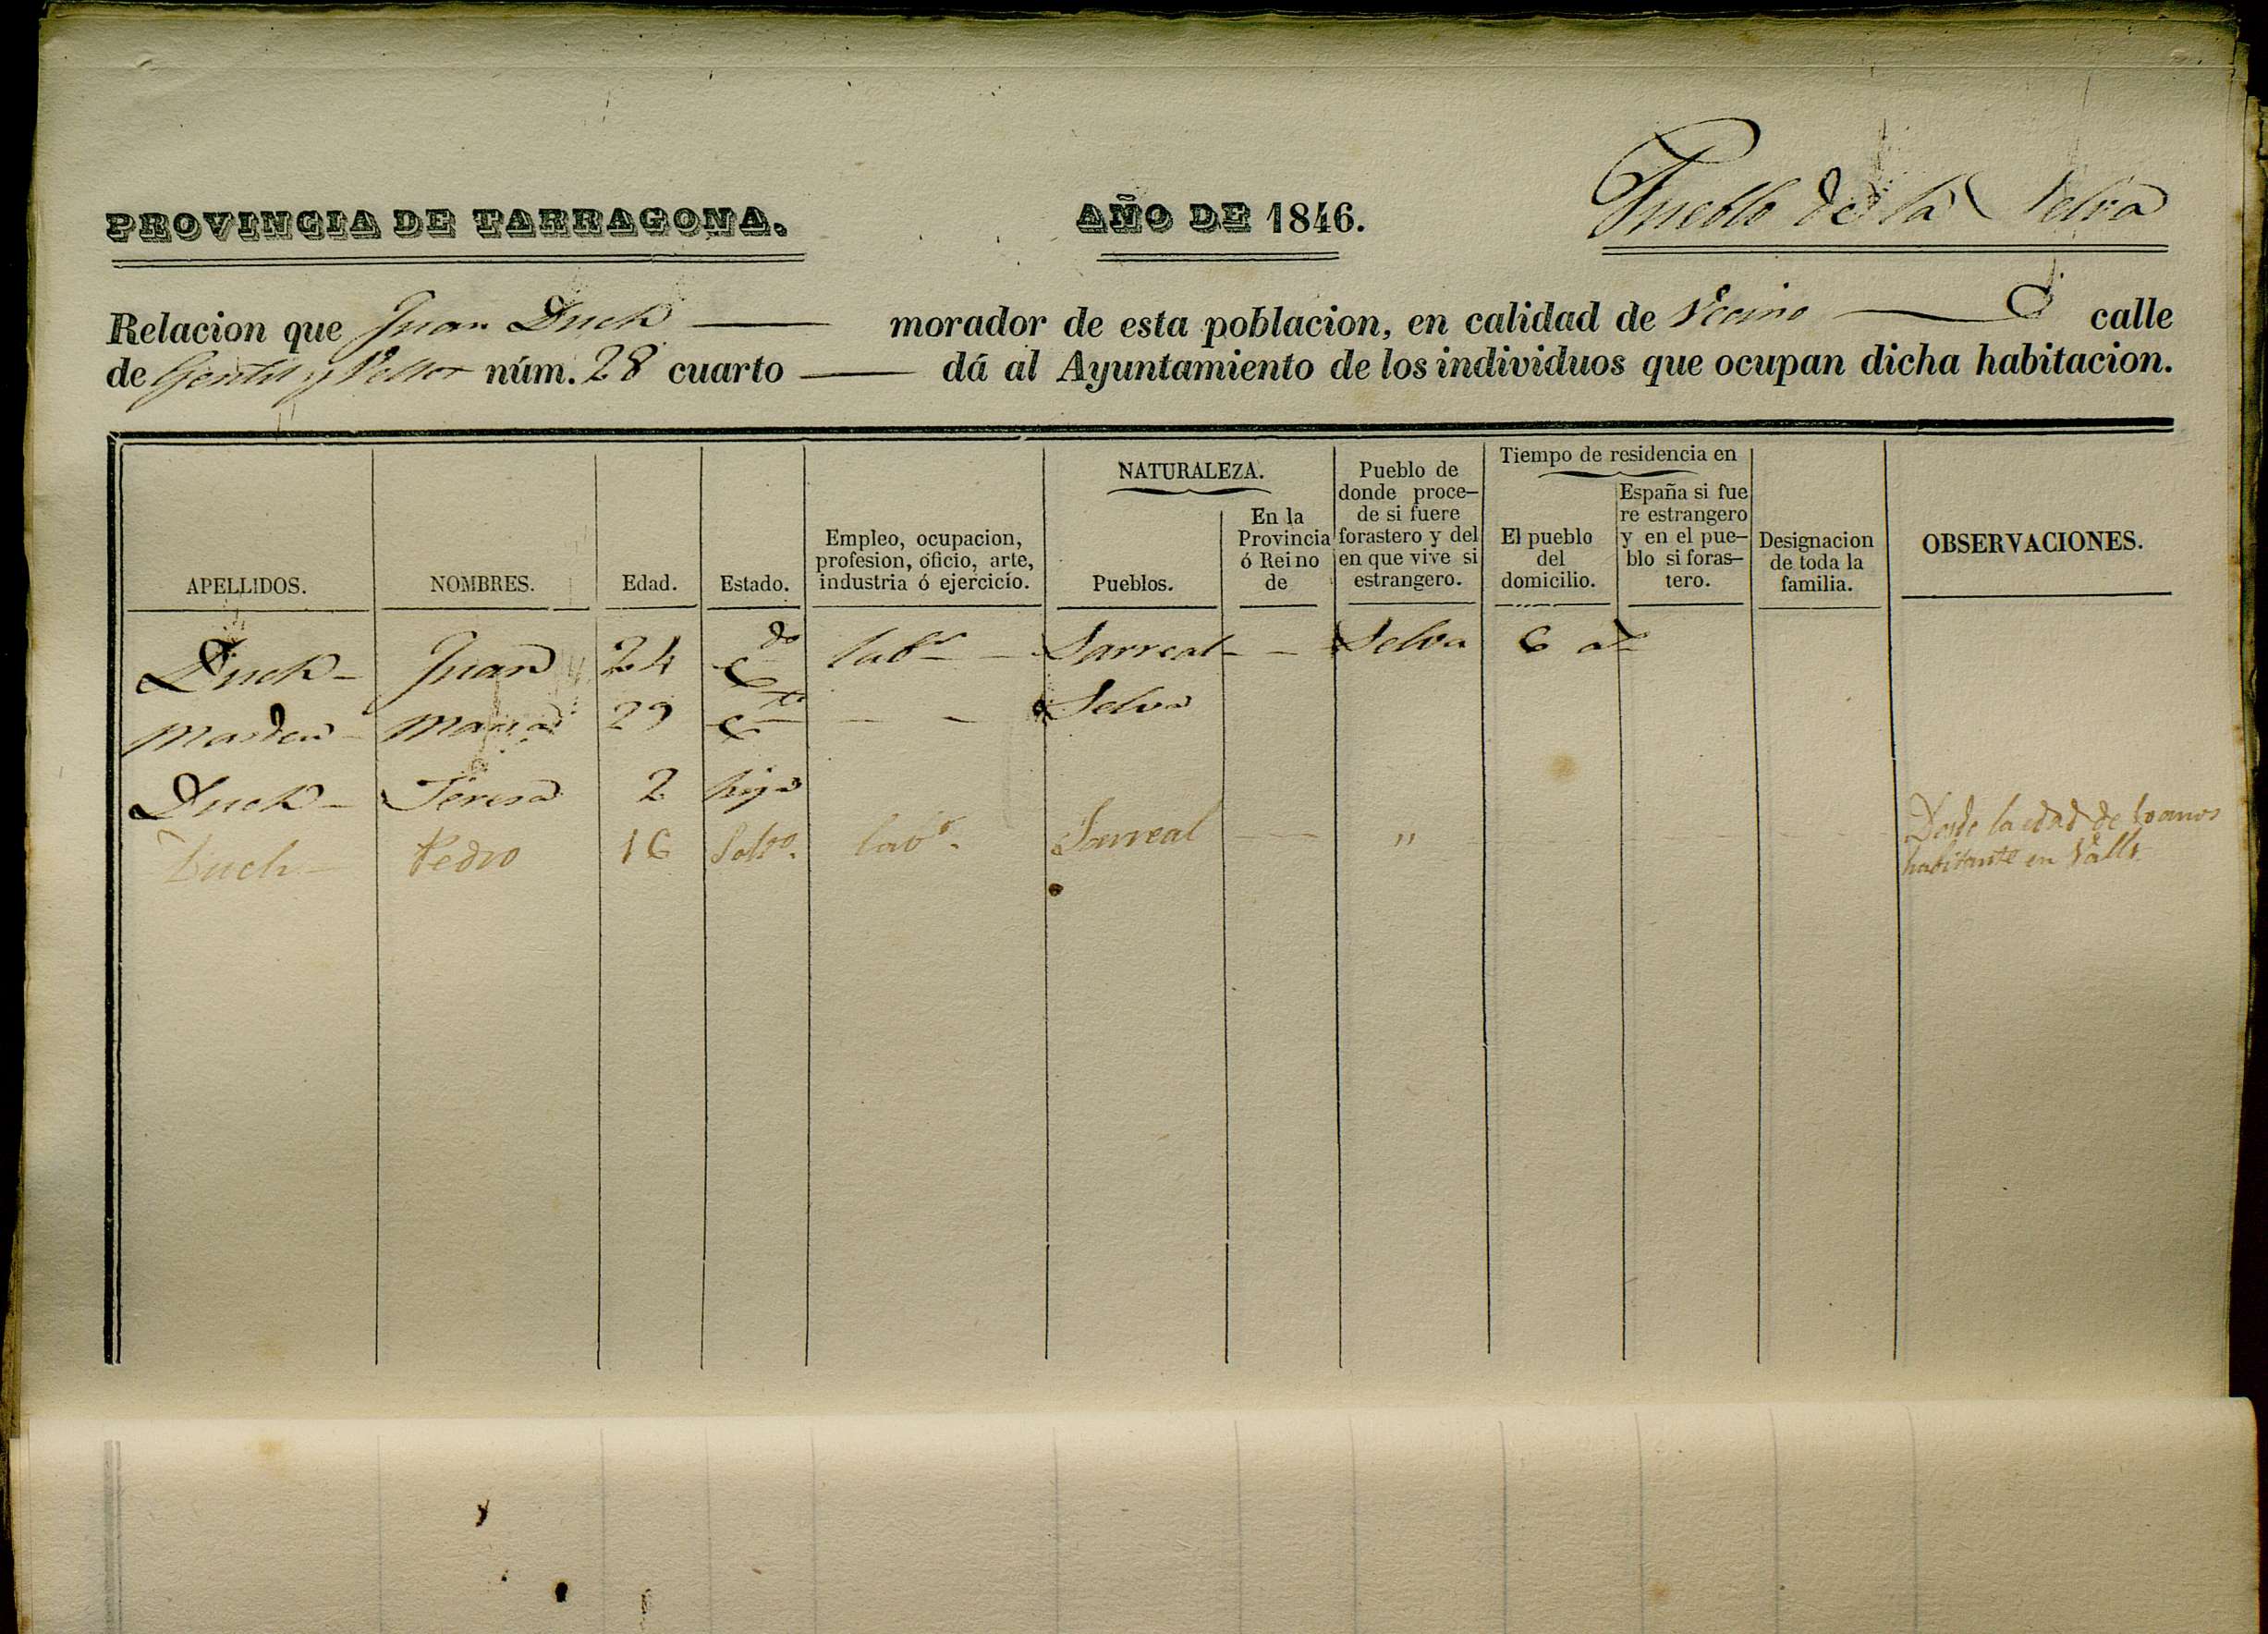 PROVINCIA DE TARRAGONA. AÑO DE 1846. Pueblo de la Selva
Relacion que Juan Duch morador de esta poblacion, en calidad de Vecino C calle
de Gentil y núm. 28 cuarto — dá al Ayuntamiento de los individuos que ocupan dicha habitacion.
APELLIDOS.
NOMBRES.
Edad.
Estado.
Empleo, ocupacion,
profesion, oficio, arte,
industria ó ejercicio.
NATURALEZA.
Pueblos.
En la
Provincia
ó Reino
de
Pueblo de
donde proce–
de si fuere
forastero y del
en que vive si
estrangero.
Tiempo de residencia en
El pueblo
del
domicilio.
España si fue
re estrangero
y en el pue–
blo si foras–
tero.
Designacion
de toda la
familia.
OBSERVACIONES.
Duch – Juan 24 Cdo labr – Sarreal – – Selva 6 as
Maria 29 Cda – – Selva
Duch – Teresa 2 hija
Duch – Pedro 16 Solto. labr. Sarreal — " — Desde la edad de años
habitante en Valls